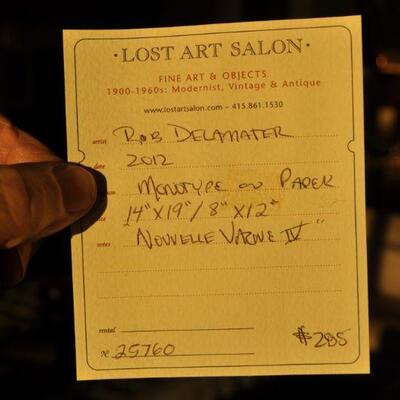 · LOST ART SALON ·
FINE ART & OBJECTS
1900-1960s: Modernist, Vintage & Antique
www.lostartsalon.com – 415.861.1530
artist ROB DELAMATER
date 2012
MONOTYPE ON PAPER
14" X 19" / 8" X 12"
notes "NOUVELLE VAGUE IV"
rental
$285
№ 25760